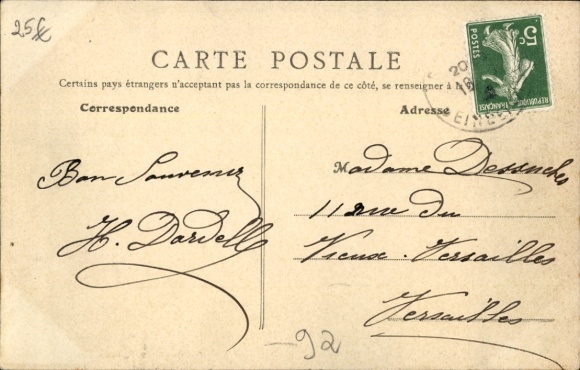 25
CARTE POSTALE
Certains pays étrangers n'acceptent pas la correspondance de ce côté, se renseigner à la
Correspondance
Adresse
5c
POSTES
REPUBLIQUE FRANÇAISE
20
Bon Souvenir
H. Dardelle
Madame
11 rue du
Vieux-Versailles
Versailles
-92